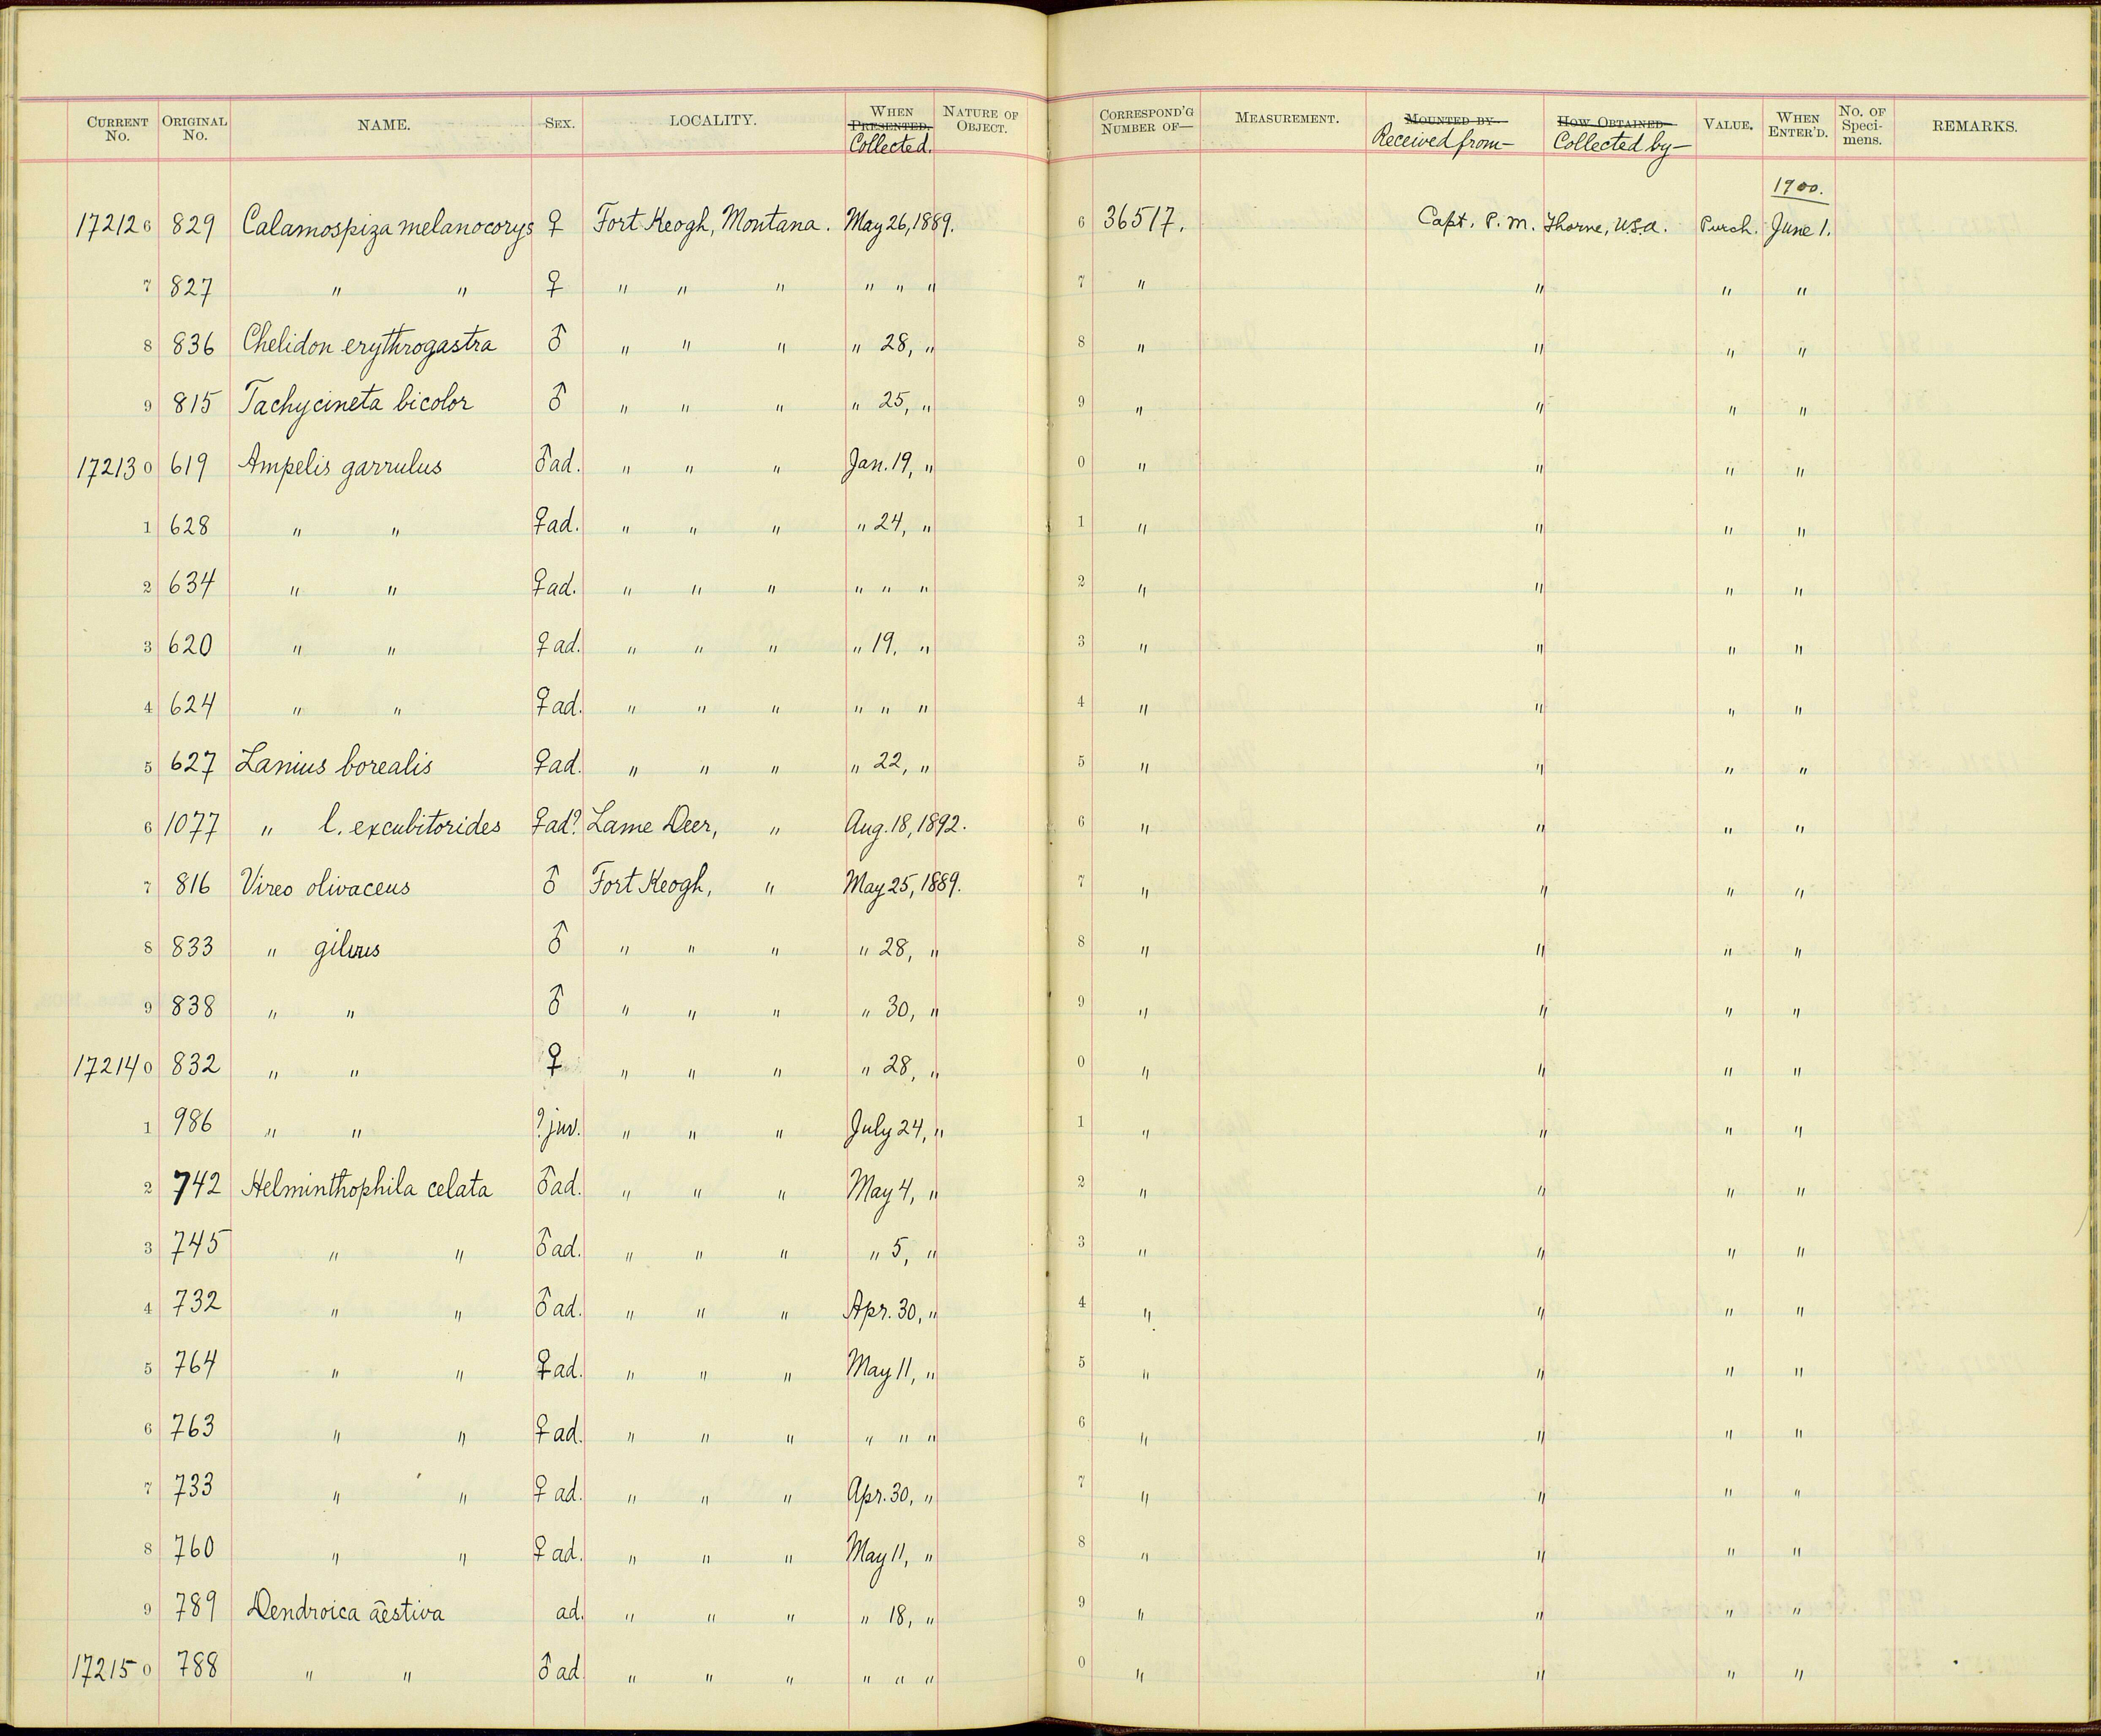 CURRENT No. ORIGINAL No. NAME. SEX. LOCALITY. WHEN PRESENTED. Collected. NATURE OF OBJECT. CORRESPOND'G NUMBER OF— MEASUREMENT. MOUNTED BY— Received from— HOW OBTAINED— Collected by— VALUE. WHEN ENTER'D. No. OF Speci-mens. REMARKS.
1900.
172126 829 Calamospiza melanocorys ♀ Fort Keogh, Montana. May 26, 1889. 6 36517. Capt. P. M. Thorne, U.S.A. Purch. June 1.
7 827 " " ♀ " " " " " " 7 " " " "
8 836 Chelidon erythrogastra ♂ " " " " 28, " 8 " " " "
9 815 Tachycineta bicolor ♂ " " " " 25, " 9 " " " "
172130 619 Ampelis garrulus ♂ ad. " " " Jan. 19, " 0 " " " "
1 628 " " ♀ ad. " " " " 24, " 1 " " " "
2 634 " " ♀ ad. " " " " " " 2 " " " "
3 620 " " ♀ ad. " " " " 19, " 3 " " " "
4 624 " " ♀ ad. " " " " " " 4 " " " "
5 627 Lanius borealis ♀ ad. " " " " 22, " 5 " " " "
6 1077 " l. excubitorides ♀ ad? Lame Deer, " Aug. 18, 1892. 6 " " " "
7 816 Vireo olivaceus ♂ Fort Keogh, " May 25, 1889. 7 " " " "
8 833 " gilvus ♂ " " " " 28, " 8 " " " "
9 838 " " ♂ " " " " 30, " 9 " " " "
172140 832 " " ♀ " " " " 28, " 0 " " " "
1 986 " " ? juv. " " " July 24, " 1 " " " "
2 742 Helminthophila celata ♂ ad. " " " May 4, " 2 " " " "
3 745 " " ♂ ad. " " " " 5, " 3 " " " "
4 732 " " ♂ ad. " " " Apr. 30, " 4 " " " "
5 764 " " ♀ ad. " " " May 11, " 5 " " " "
6 763 " " ♀ ad. " " " " " " 6 " " " "
7 733 " " ♀ ad. " " " Apr. 30, " 7 " " " "
8 760 " " ♀ ad. " " " May 11, " 8 " " " "
9 789 Dendroica æstiva ad. " " " " 18, " 9 " " " "
172150 788 " " ♂ ad " " " " " " 0 " " " "